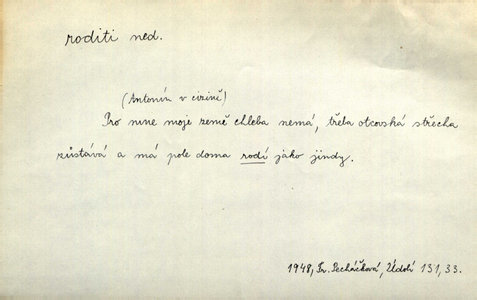 roditi ned.
(Antonín v cizině)
Pro mne moje země chleba nemá, třeba otcovská střecha
zůstává a má pole doma rodí jako jindy.
1948, Fr. Pecháčková, Údolí 131,33.